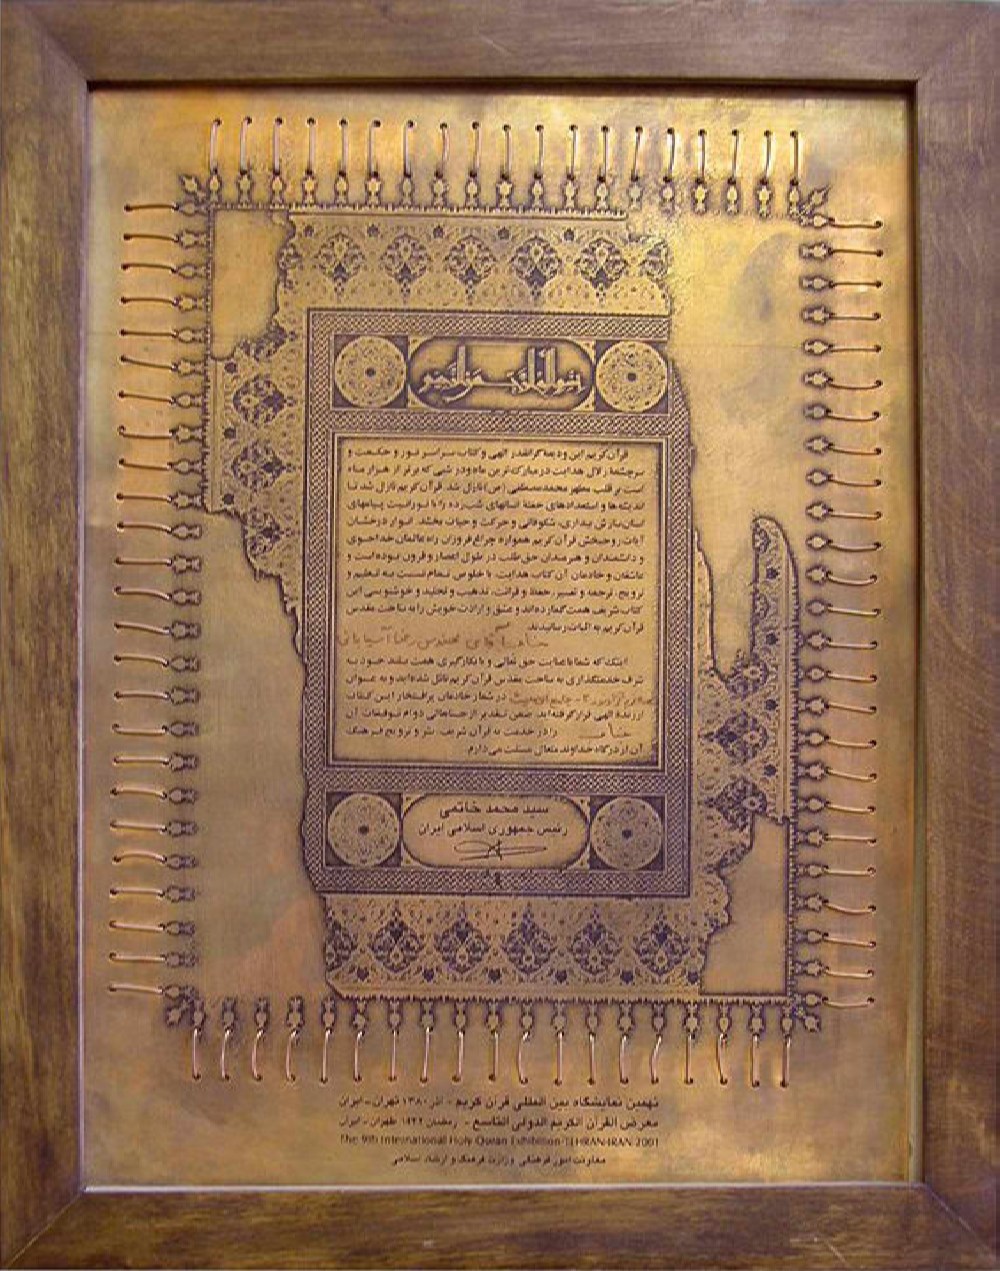 قرآن کریم این ودیعهٔ گرانقدر الهی و کتاب سراسر نور و حکمت و
سرچشمهٔ زلال هدایت در مبارک‌ترین ماه و در شبی که برتر از هزار ماه
است بر قلب مطهر محمد مصطفی (ص) نازل شد. قرآن کریم نازل شد تا
اندیشه‌ها و استعدادهای خفتهٔ انسانهای شب‌زده را با نورانیت پیامهای
انسان‌سازش بیداری، شکوفائی و حرکت و حیات بخشد. انوار درخشان
آیات روحبخش قرآن کریم همواره چراغ فروزان راه عالمان خداجوی
و دانشمندان و هنرمندان حق‌طلب در طول اعصار و قرون بوده است و
عاشقان و خادمان آن کتاب هدایت، با خلوص تمام نسبت به تعلیم و
ترویج، ترجمه و تفسیر، حفظ و قرائت، تذهیب و تجلید و خوشنویسی این
کتاب شریف همت گمارده‌اند و عشق و ارادت خویش را به ساحت مقدس
قرآن کریم به اثبات رسانیدند.
جناب آقای مهندس رضا آسیابانی
اینک که شما با عنایت حق تعالی و با بکارگیری همت بلند خود به
شرف خدمتگذاری به ساحت مقدس قرآن کریم نائل شده‌اید و به عنوان
در شمار خادمان پرافتخار این کتاب
ارزندهٔ الهی قرار گرفته‌اید، ضمن تقدیر از جنابعالی دوام توفیقات آن
جناب را در خدمت به قرآن شریف، نشر و ترویج فرهنگ
آن از درگاه خداوند متعال مسئلت می‌دارم.
سید محمد خاتمی
رئیس جمهوری اسلامی ایران
نهمین نمایشگاه بین المللی قرآن کریم - آذر ۱۳۸۰ تهران - ایران
معرض القرآن الکریم الدولی التاسع - رمضان ۱۴۲۲ طهران - ایران
The 9th International Holy Quran Exhibition-TEHRAN-IRAN 2001
معاونت امور فرهنگی وزارت فرهنگ و ارشاد اسلامی